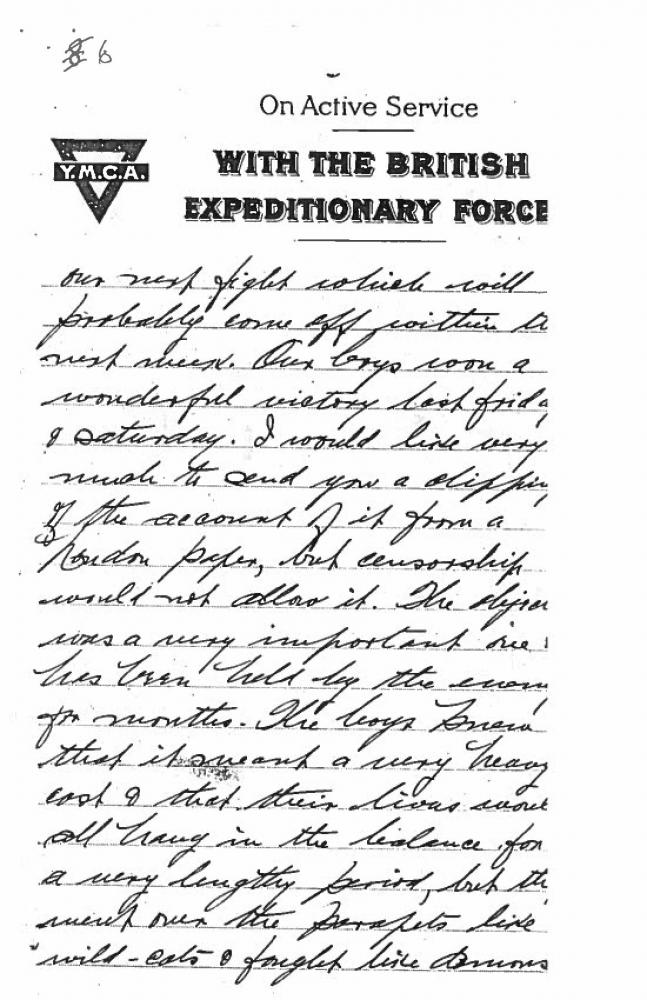 6
On Active Service
Y.M.C.A.
WITH THE BRITISH
EXPEDITIONARY FORCE
our next fight which will
probably come off within th
next week. Our boys won a
wonderful victory last frida
& saturday. I would like very
much to send you a clippin
of the account of it from a
London paper, but censorship
would not allow it. The objec
was a very important one
has been held by the enem
for months. The boys knew
that it meant a very heavy
cost & that their lives woul
all hang in the balance for
a very lengthy period, but the
went over the parapets like
wild-cats & fought like demons